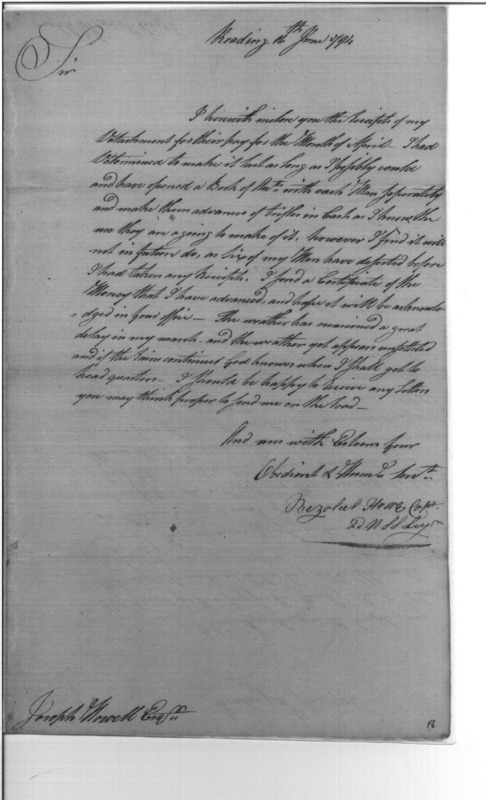 Reading 16th June 1794
Sir
I herewith inclose you the Receipts of my
Detachment for their pay for the Month of April. I had
Determined to make it last as long as I possibly could
and have opened a Book of with each Man seperately
and make them advances of trifles in Cash as I know the
use they are a going to make of it, however I find it will
not in future do, as Six of my Men have deserted before
I had taken any Receipts. I send a Certificate of the
Money that I have advanced, and hope it will be acknowle-
-dged in your office — the weather has occasioned a great
delay in my march, and the weather yet appears unsettled
and if the rain continues God knows when I shall get to
head quarters — I should be happy to receive any Letters
you may think proper to send me on the road —
And am with Esteem your
Obedient & Humle Servt.
Bezaleel Howe Capt.
2d U S S Leg
Joseph Howell Esqr.